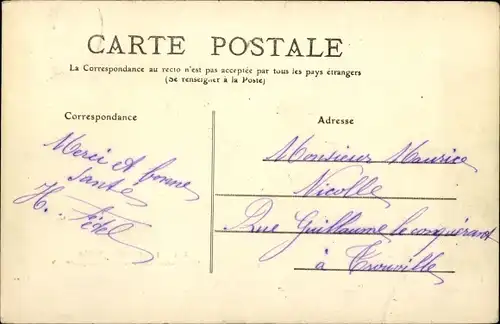 CARTE POSTALE
La Correspondance au recto n'est pas acceptée par tous les pays étrangers
(Se renseigner à la Poste)
Correspondance
Merci et bonne
santé
H.
Adresse
Monsieur Maurice
Nicolle
Rue Guillaume le conquérant
à Trouville